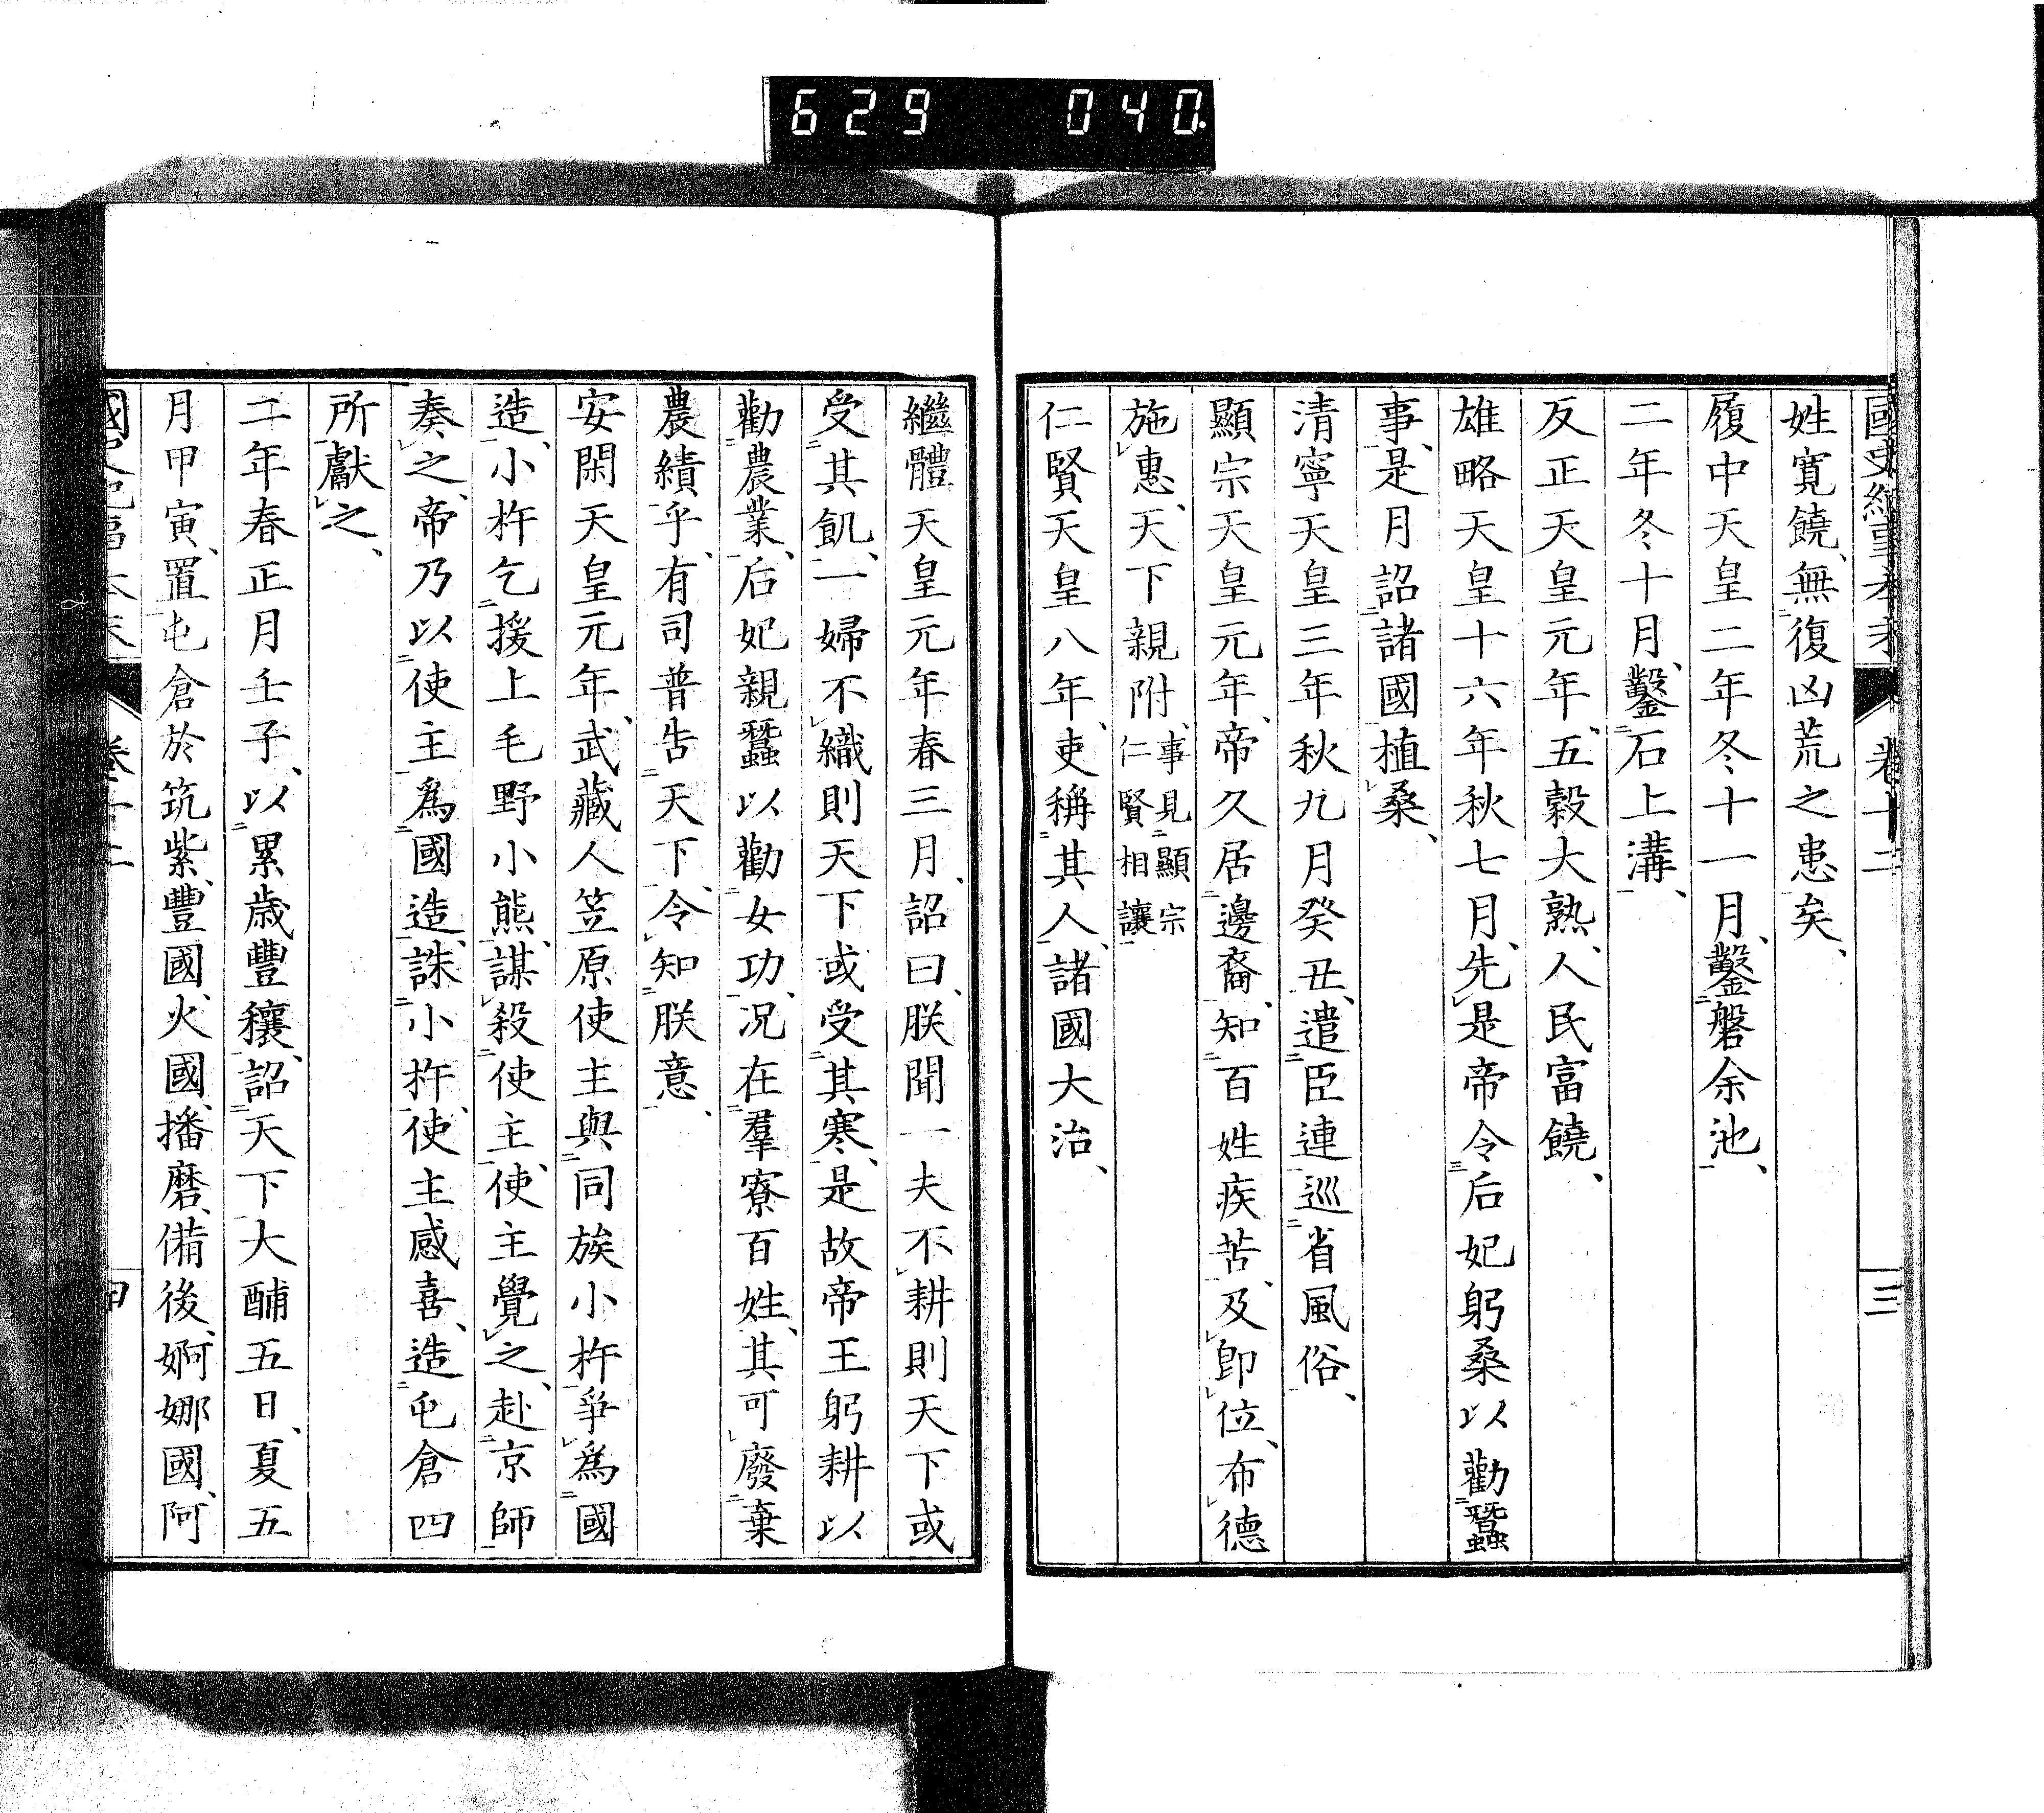 629 040.
國史紀事本末 卷十二 三
姓寛饒、無復凶荒之患矣、
履中天皇二年冬十一月、鑿磐余池、
二年冬十月、鑿石上溝、
反正天皇元年、五穀大熟、人民富饒、
雄略天皇十六年秋七月、先是帝令后妃躬桑以勸蠶
事、是月詔諸國植桑、
清寧天皇三年秋九月癸丑、遣臣連巡省風俗、
顯宗天皇元年、帝久居邊裔、知百姓疾苦、及即位、布德
施惠、天下親附、事見顯宗仁賢相讓
仁賢天皇八年、吏稱其人、諸國大治、
繼體天皇元年春三月、詔曰、朕聞一夫不耕則天下或
受其飢、一婦不織則天下或受其寒、是故帝王躬耕以
勸農業、后妃親蠶以勸女功、况在羣寮百姓、其可廢棄
農績乎、有司普告天下、令知朕意、
安閑天皇元年、武藏人笠原使主與同族小杵爭爲國
造、小杵乞援上毛野小熊、謀殺使主、使主覺之、赴京師
奏之、帝乃以使主爲國造、誅小杵、使主感喜、造屯倉四
所獻之、
二年春正月壬子、以累歳豐穰、詔天下大酺五日、夏五
月甲寅、置屯倉於筑紫、豐國、火國、播磨、備後、婀娜國、阿